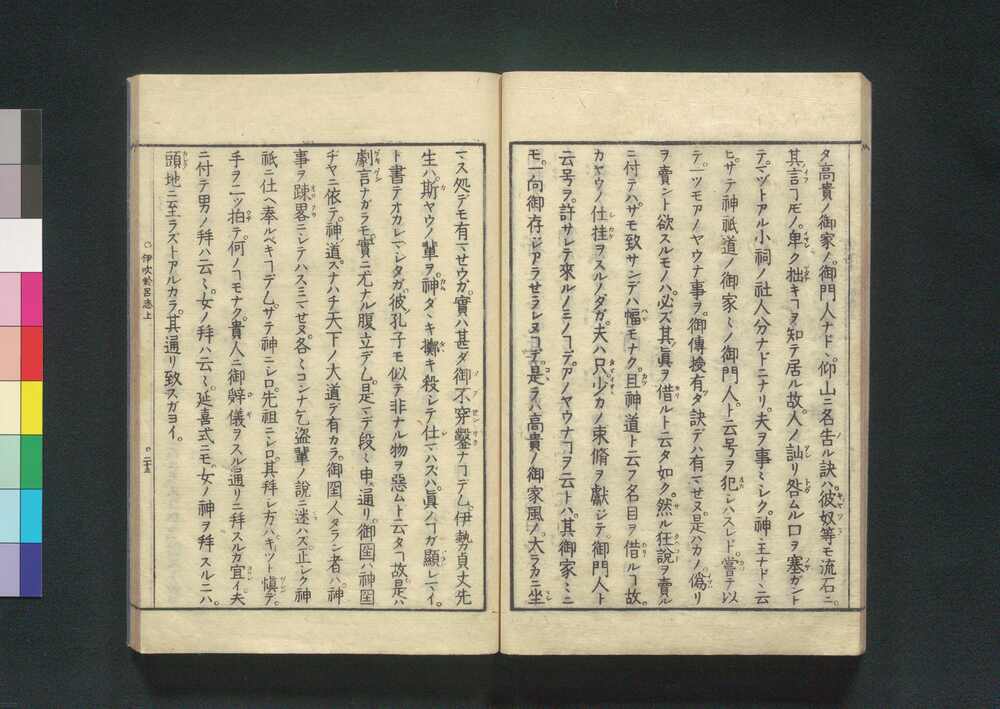 タ高貴ノ御家ノ御門人ナド、仰山ニ名告ル訣ハ、彼奴等モ流石ニ。
其言ヿ𪜈ノ。卑ク拙キヿヲ知テ居ル故。人ノ訕リ咎ムル口ヲ塞ガント
テ。マヅトアル小祠ノ社人分ナドニナリ。夫ヲ事〻シク。神主ナド〻云
ヒ。サテ神祇道ノ御家〻ノ御門人ト云号ヲ犯シハスレド。嘗テ以
テ一ツモアノヤウナ事ヲ。御傳授有タ訣デハ有マセヌ。是ハカノ偽リ
ヲ賣ント欲スルモノハ。必ズ其眞ヲ借ルト云タ如ク。然ル狂説ヲ賣ル
ニ付テハ。サモ致サンデハ幅モナク。且神道ト云フ名目ヲ借ルヿ故。
カヤウノ仕挂ヲスルノダガ。夫ハ只少カノ束脩ヲ獻ジテ。御門人ト
云号ヲ許サレテ來ルノミノヿデ。アノヤウナヿヲ云トハ。其御家〻ニ
モ。一向御存ジアラセラレヌヿデ。是ラハ高貴ノ御家風ノ。大ラカニ坐
マス処デモ有マセウガ。實ハ甚ダ御不穿鑿ナヿデム。伊勢貞丈先
生ハ。斯ヤウノ輩ヲ。神タヽキ擲キ殺シテ仕マハズハ。眞ノヿガ顯レマイ。
ト書テオカレマシタガ。彼孔子モ似テ非ナル物ヲ惡ムト云タヿ故。是ハ
劇言ナガラモ。實ニ尤ナル腹立デム。是マデ段〻申通リ。御国ハ神国
ヂヤニ依テ。神道スナハチ天下ノ大道デ有カラ。御国人タラン者ハ。神
事ヲ踈畧ニシテハスミマセヌ。各〻コンナ乞盗輩ノ説ニ迷ハズ。正シク神
祇ニ仕ヘ奉ルベキヿデム。サテ神ニシロ。先祖ニシロ。其拜シ方ハ。キット愼デ。
手ヲ二ツ拍テ。何ノヿモナク。貴人ニ御辭儀ヲスル通リニ拜スルガ宜イ。夫
ニ付テ男ノ拜ハ云〻。女ノ拜ハ云〻。延喜式ニモ。女ノ神ヲ拜スルニハ。
頭地ニ至ラズトアルカラ。其通リ致スガヨイ。
伊吹於呂志上
二十五